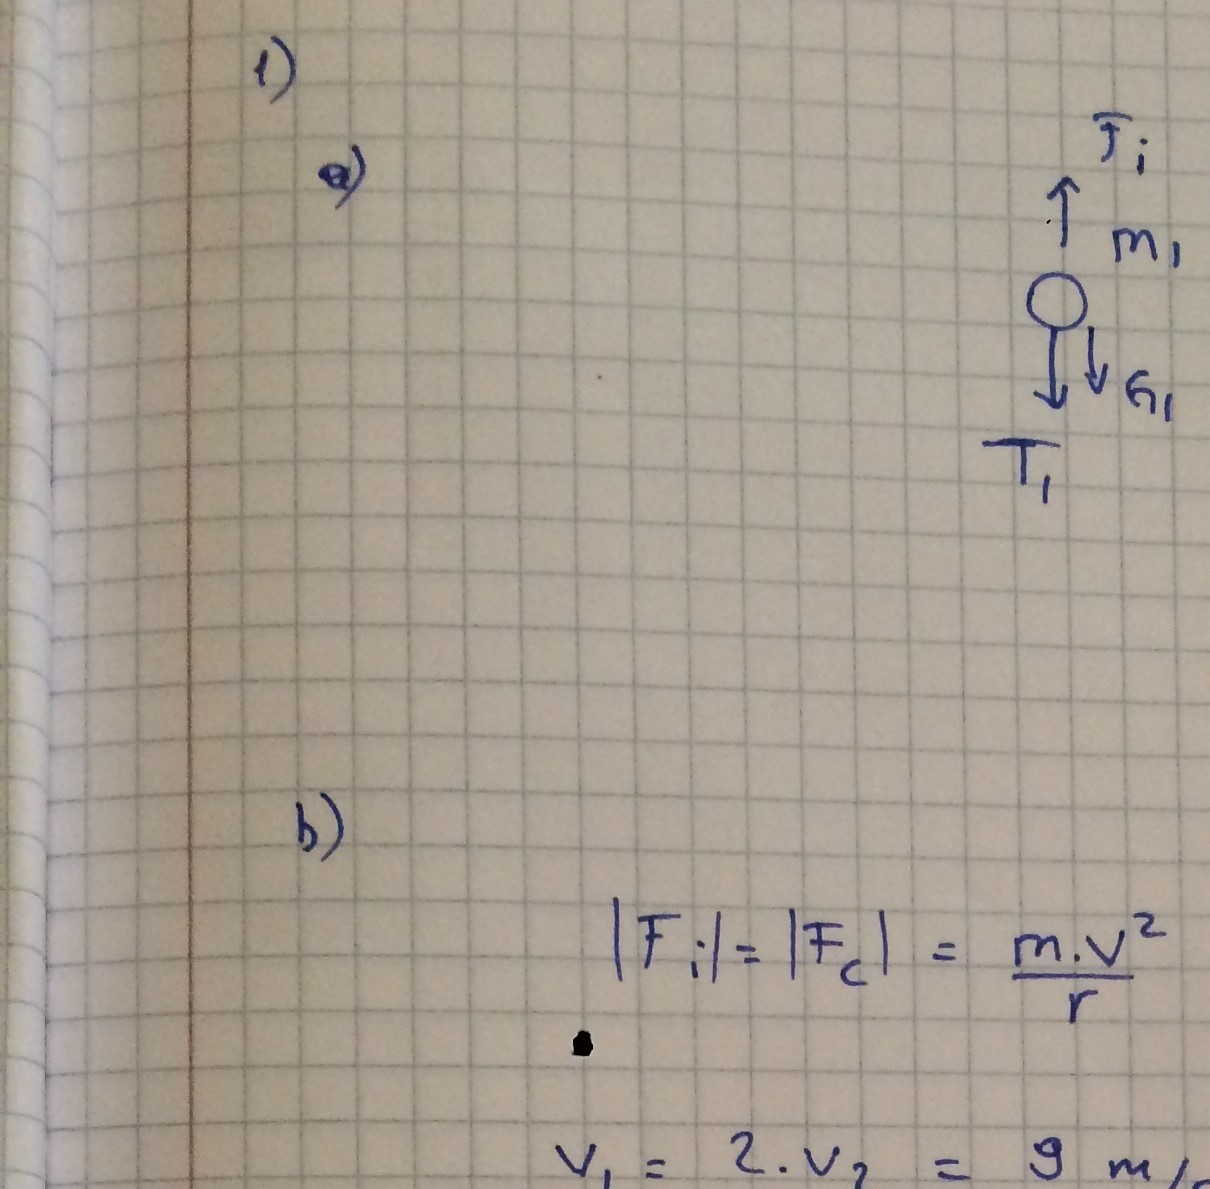 1)
a)
Fi
m1
G1
T1
b)
|Fi| = |Fc| = m.v² / r
v1 = 2.v2 = 9 m/s